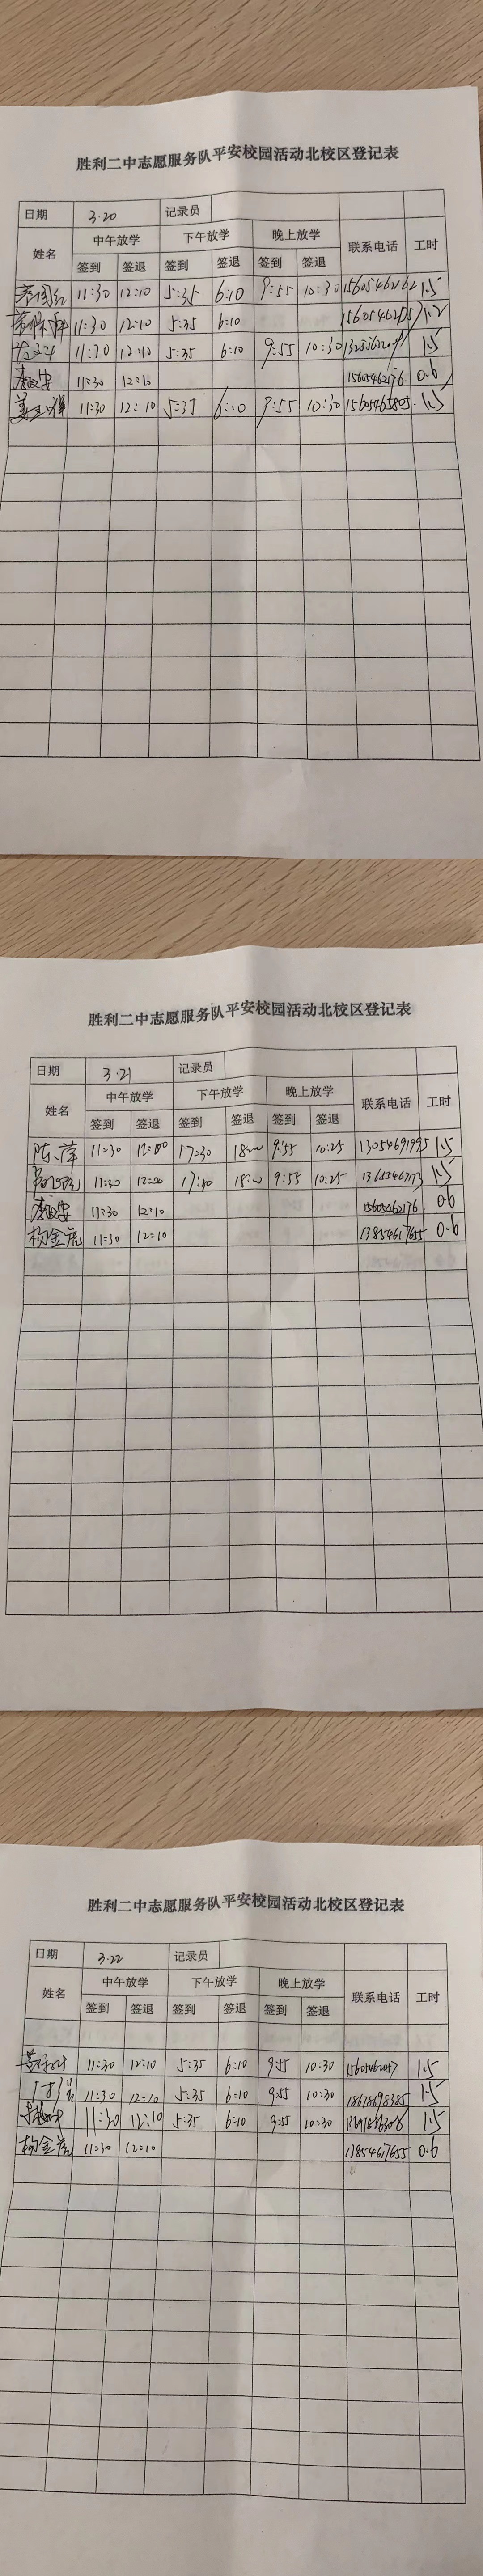 胜利二中志愿服务队平安校园活动北校区登记表
日期 3.20 记录员
姓名 中午放学 下午放学 晚上放学 联系电话 工时
签到 签退 签到 签退 签到 签退
11:30 12:10 5:35 6:10 9:55 10:30 15605462162 1.5
11:30 12:10 5:35 6:10 1.2
11:30 12:10 5:35 6:10 9:55 10:30 1.5
11:30 12:10 15605462176 0.6
11:30 12:10 5:35 6:10 9:55 10:30 15605465805 1.5
胜利二中志愿服务队平安校园活动北校区登记表
日期 3.21 记录员
姓名 中午放学 下午放学 晚上放学 联系电话 工时
签到 签退 签到 签退 签到 签退
陈萍 11:30 12:00 17:30 18:00 9:55 10:25 13054691995 1.5
11:30 12:00 17:30 18:00 9:55 10:25 1.5
11:30 12:10 15605462176 0.6
杨金虎 11:30 12:10 13854617655 0.6
胜利二中志愿服务队平安校园活动北校区登记表
日期 3.22 记录员
姓名 中午放学 下午放学 晚上放学 联系电话 工时
签到 签退 签到 签退 签到 签退
11:30 12:10 5:35 6:10 9:55 10:30 1.5
11:30 12:10 5:35 6:10 9:55 10:30 18678698385 1.5
11:30 12:10 5:35 6:10 9:55 10:30 1.5
杨金虎 11:30 12:10 13854617655 0.6